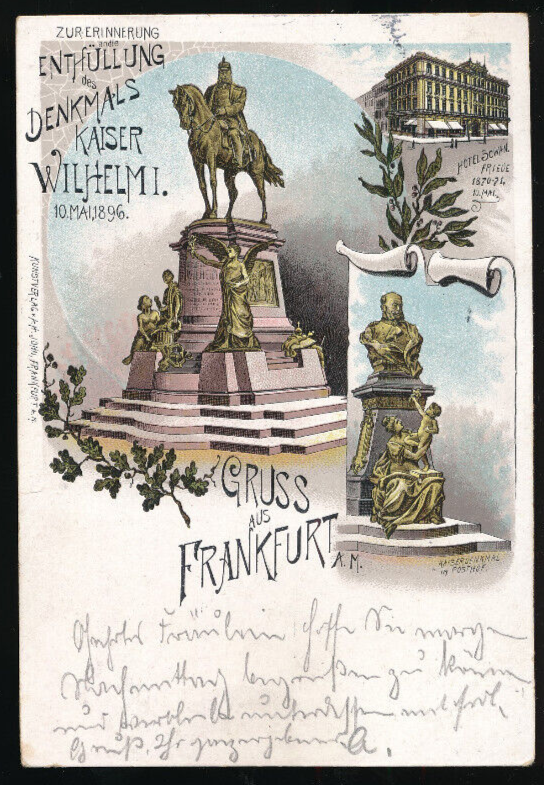 ZUR ERINNERUNG
an die
ENTHÜLLUNG
des
DENKMALS
KAISER
WILHELM I.
10. MAI, 1896.
HOTEL SCHWAN.
FRIEDE
1870-71.
10. MAI.
KUNSTVERLAG
FRANKFURT A. M.
GRUSS
AUS
FRANKFURT
A. M.
KAISERDENKMAL
IM POSTHOF.
Geehrtes Fräulein hoffe Sie morgen
Nachmittag begrüßen zu können
und verbleibe unterdessen mit herzl.
Gruß, Ihr ganz ergebener A.